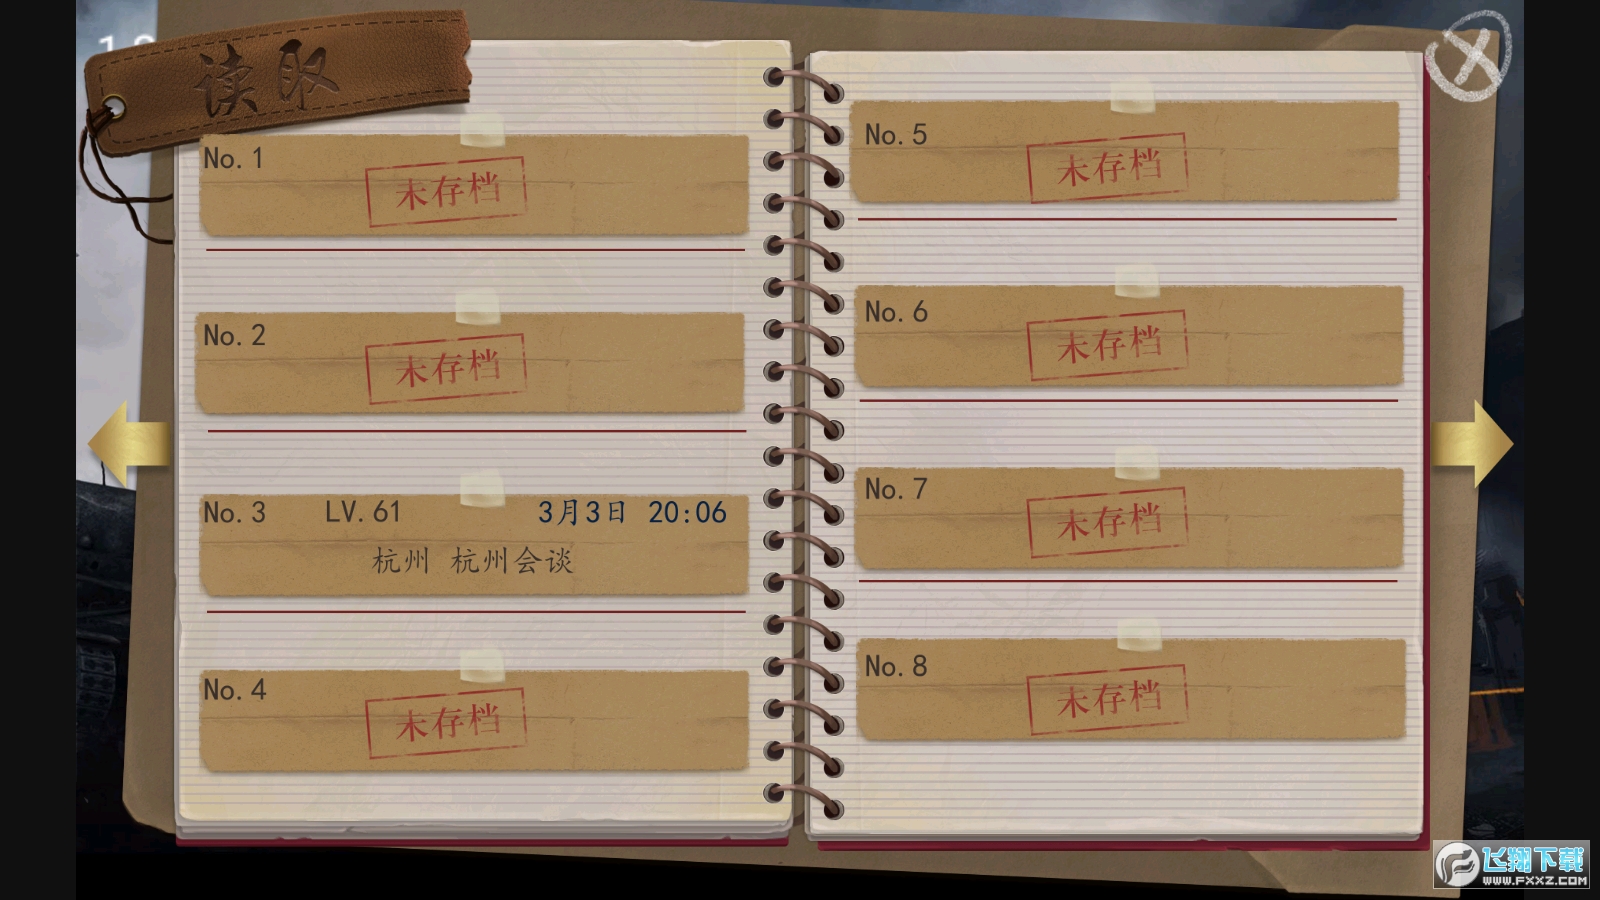 读取
No. 1
未存档
No. 2
未存档
No. 3 LV. 61 3月3日 20:06
杭州 杭州会谈
No. 4
未存档
No. 5
未存档
No. 6
未存档
No. 7
未存档
No. 8
未存档
飞翔下载
WWW.FXXZ.COM